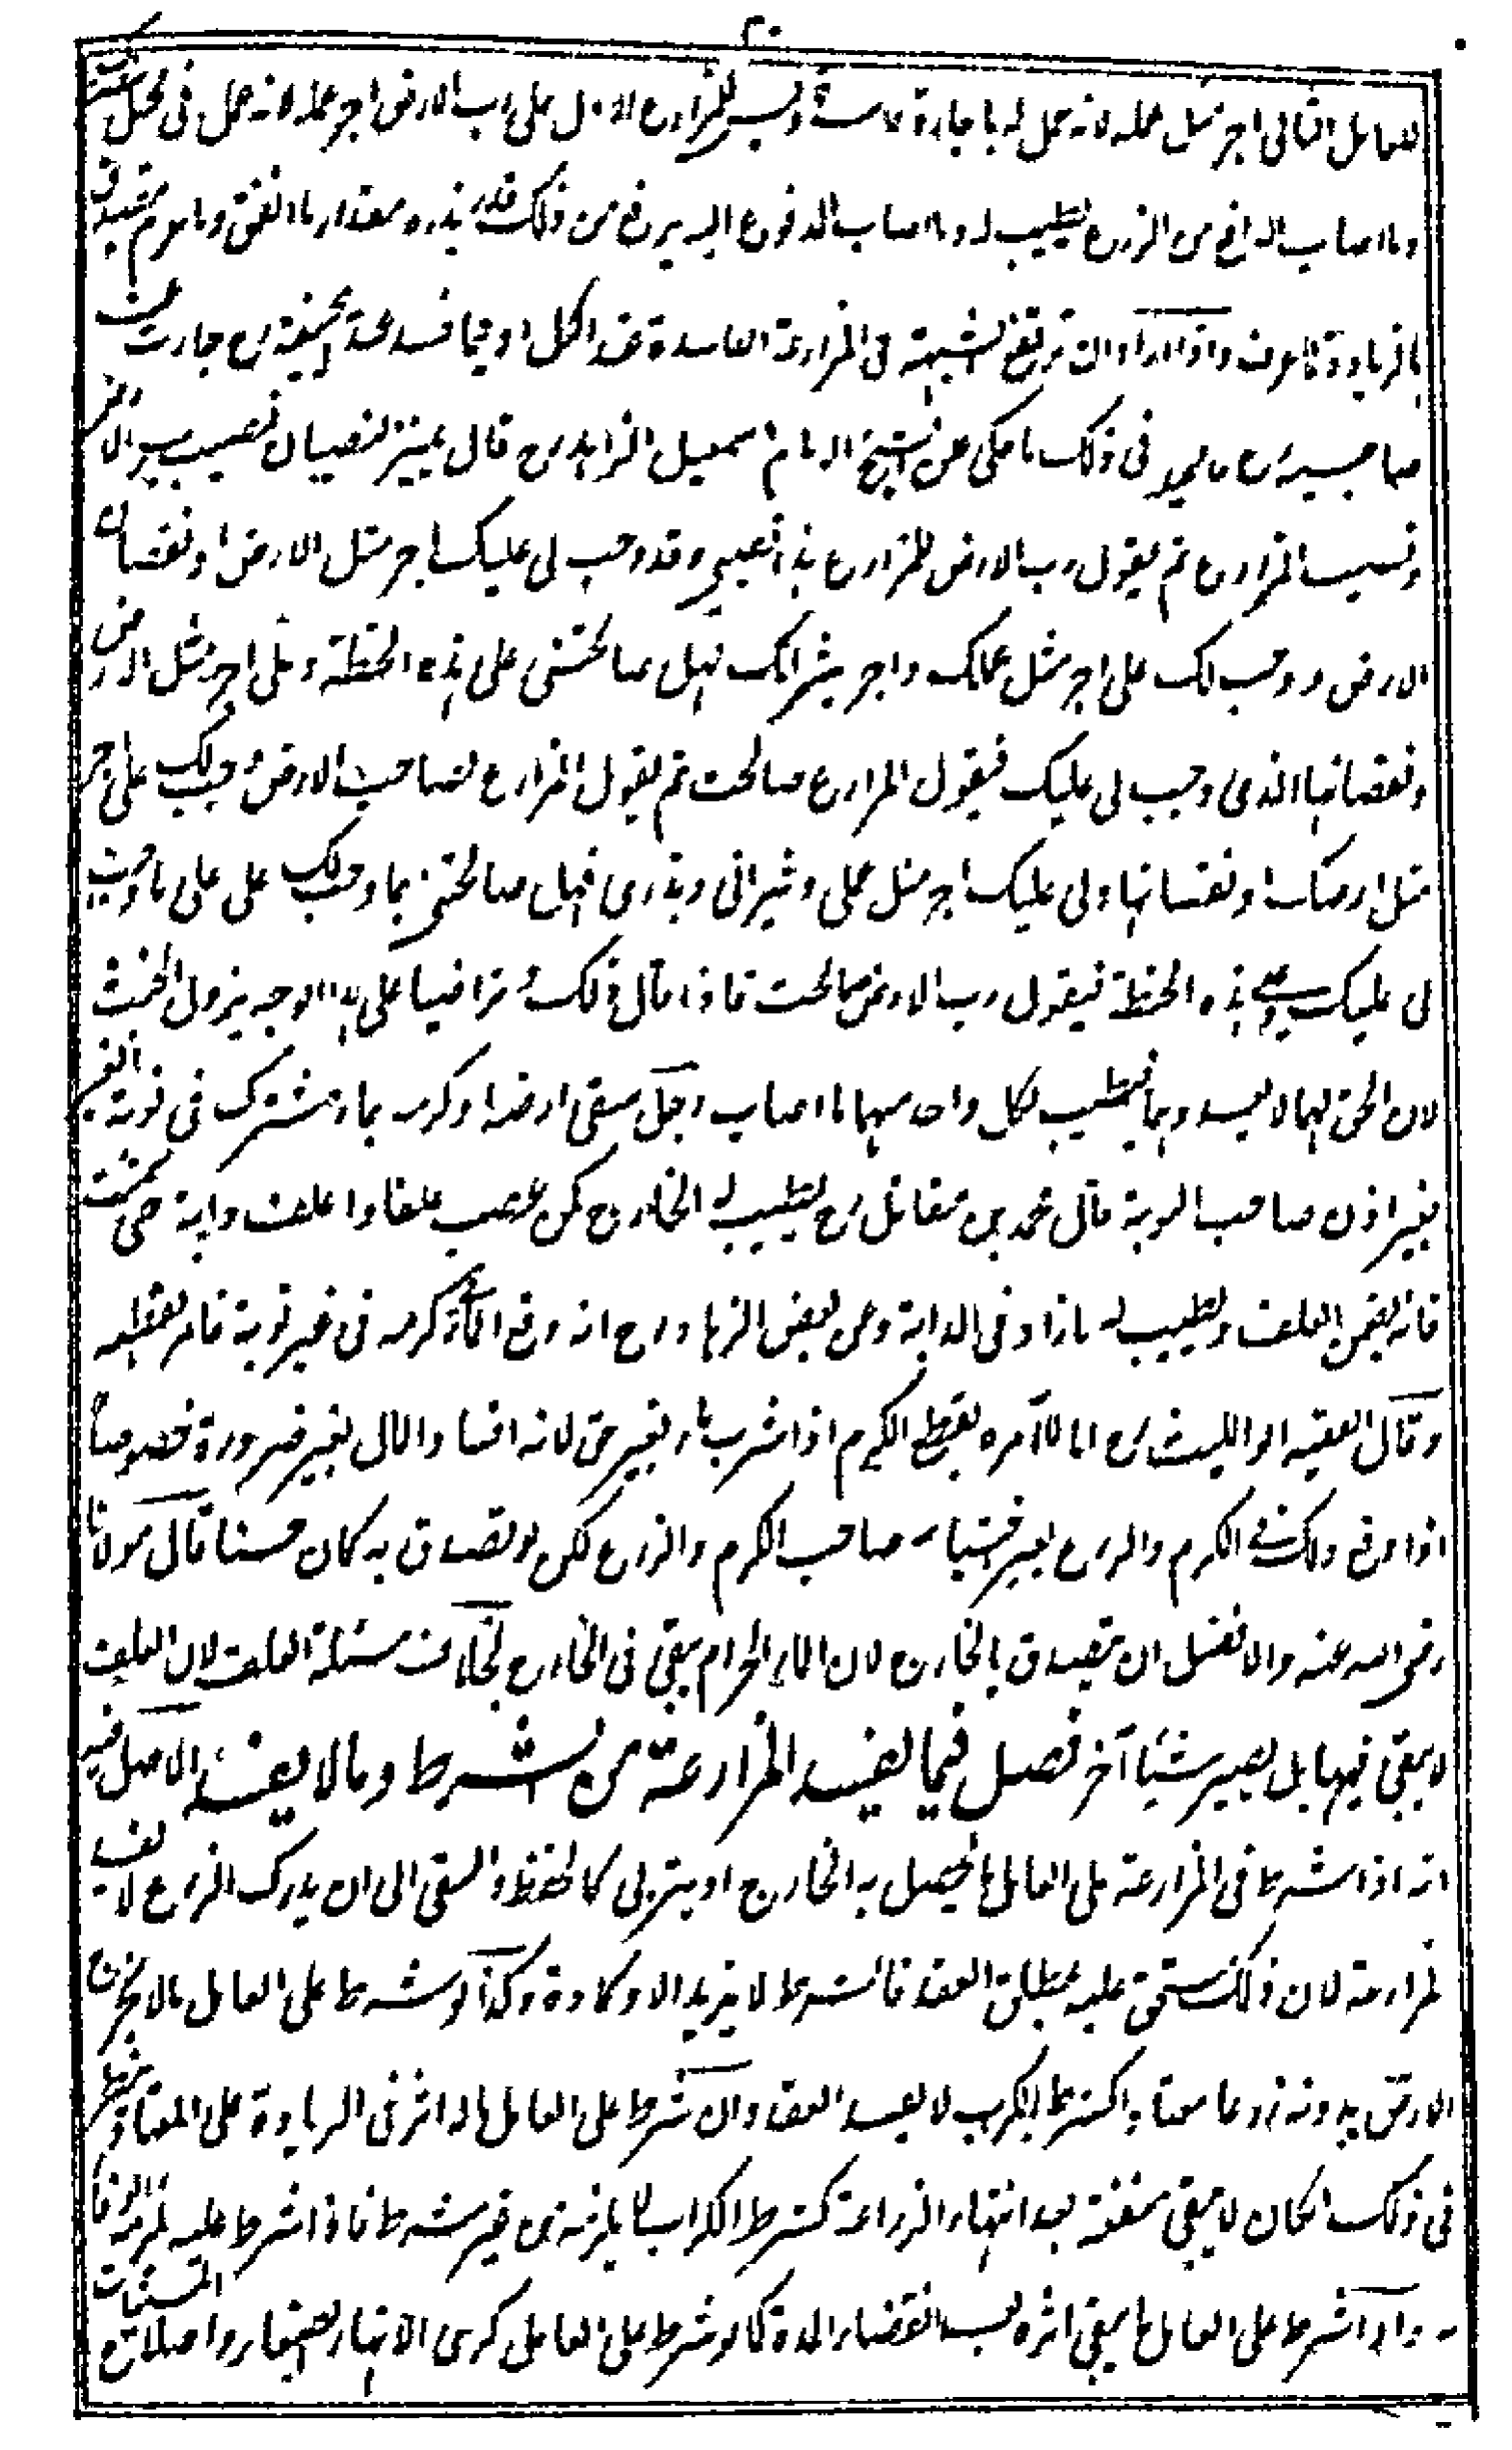 ٢٠
للعامل الثانى اجر مثل عمله لانه عمل له باجارة فاسدة وليس للمزارع الاول على رب الارض اجر عمله لانه عمل فى محل
وما اصاب الدافع من الزرع يطيب له وما اصاب المدفوع اليه يرفع من ذلك قدر بذره مقدار ما انفق وما غرم ويتصدق
بالزيادة كما عرف واذا اراد ان ترتفع الشبهة فى المزارعة الفاسدة عند الكل او فيما فسد عند ابى حنيفة رح جازت عند
صاحبيه رح فى ذلك ما حكى عن الشيخ الامام اسمعيل الزاهد رح قال يميز النصيبان نصيب رب الارض
ونصيب المزارع ثم يقول رب الارض للمزارع هذا نصيبى وقد وجب لى عليك اجر مثل الارض او نقصان
الارض ووجب لك على اجر مثل عملك واجر ثيرانك فهل صالحتنى على هذه الحنطة وعلى اجر مثل الارض
ونقصانها الذى وجب لى عليك فيقول المزارع صالحت ثم يقول المزارع لصاحب الارض وجب لك على اجر
مثل ارضك او نقصانها ولى عليك اجر مثل عملى وثيرانى وبذرى فهل صالحتنى بما وجب لك على على ما وجب
لى عليك وعلى هذه الحنطة فيقول رب الارض صالحت فاذا قال ذلك وتراضيا على هذا الوجه يزول الخبث
لان الحق لهما لا يعدوهما فيطيب لكل واحد منهما ما اصاب رجل سقى ارضه او كرمه بماء مشترك فى نوبة الغير
بغير اذن صاحب النوبة قال محمد بن مقاتل رح يطيب له الخارج كمن غصب علفا واعلف دابة حتى سمنت
فانه يضمن العلف ويطيب له ما زاد فى الدابة وعن بعض الزهاد رح انه وقع الماء فى كرمه فى غير نوبة فامر بقطعه
وقال الفقيه ابو الليث رح انا لا آمره بقطع الكرم اذا شرب ماء بغير حق لانه افساد المال بغير ضرورة خصوصا
اذا وقع ذلك فى الكرم والزرع بغير اختيار صاحب الكرم والزرع لكن لو تصدق به كان حسنا قال مولانا
رضى الله عنه والافضل ان يتصدق بالخارج لان الماء الحرام يبقى فى الخارج بخلاف مسئلة العلف لان العلف
لا يبقى فيها بل يصير شيئا آخر فصل فيما يفسد المزارعة من الشرط وما لا يفسد الاصل فيه
انه اذا شرط فى المزارعة على العامل ما يحصل به الخارج او يتربى كالحفظ والسقى الى ان يدرك الزرع لا يفسد
المزارعة لان ذلك مستحق عليه بمطلق العقد فالشرط لا يزيد الا وكادة وكذا لو شرط على العامل ما لا يخرج
الارض بدونه زرعا معتادا كشرط الكرب لا يفسد العقد وان شرط على العامل ما له اثر فى الزيادة على المعتاد
فى ذلك المكان لا يبقى منفعة بعد انتهاء الزراعة كشرط الكراب لا يلزمه من غير شرط فاذا شرط عليه لزمه الوفاء
به واذا شرط على العامل ما يبقى اثره بعد انقضاء المدة كما لو شرط على العامل كرى الانهار الصغار واصلاح المسنيات